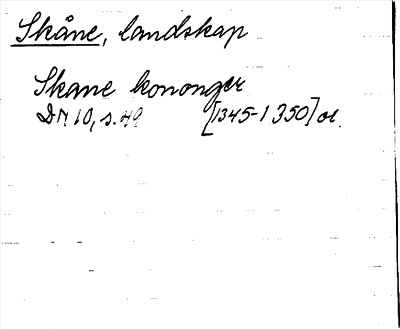 Skåne, landskap
Skane kononger
DN 10, s. 49 [1345-1350] or.